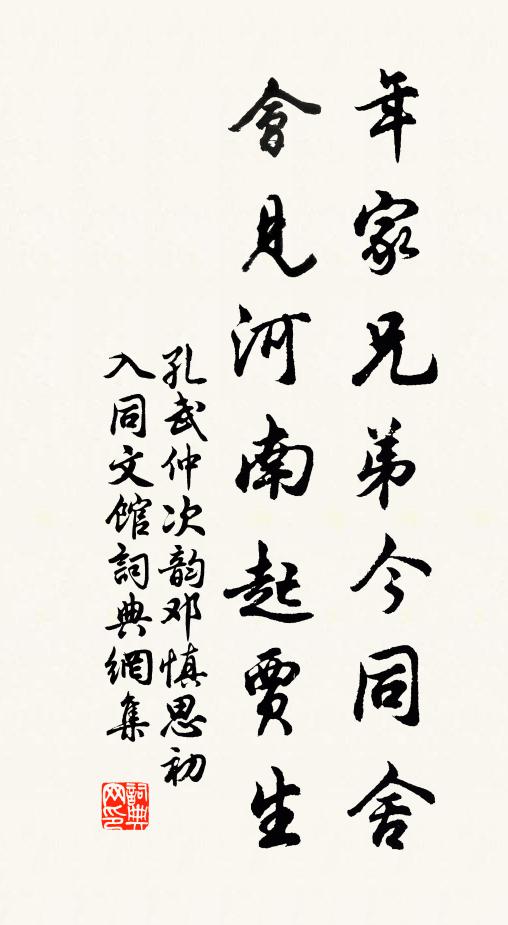 年家兄弟今同舍
會見河南起賈生
孔武仲次韵邓慎思初
入同文館詞典網集
詞典网印